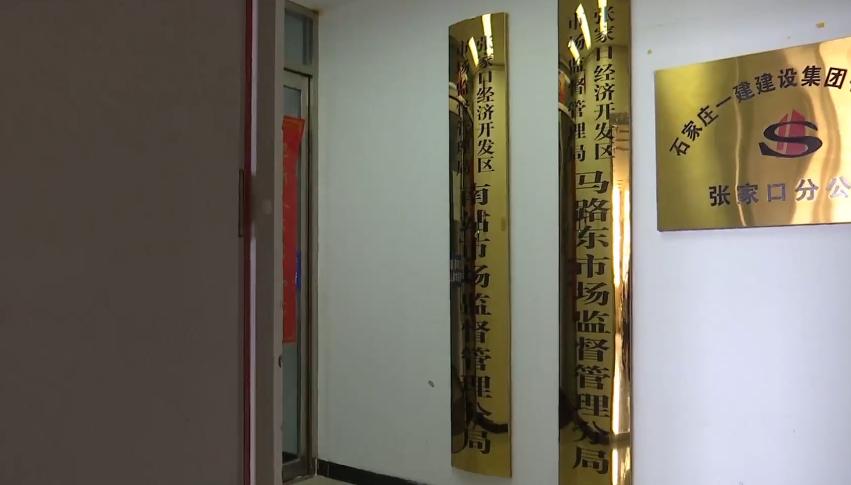 张家口经济开发区
市场监督管理局
南站市场监督管理分局
张家口经济开发区
市场监督管理局
马路东市场监督管理分局
石家庄一建建设集团
S
张家口分公